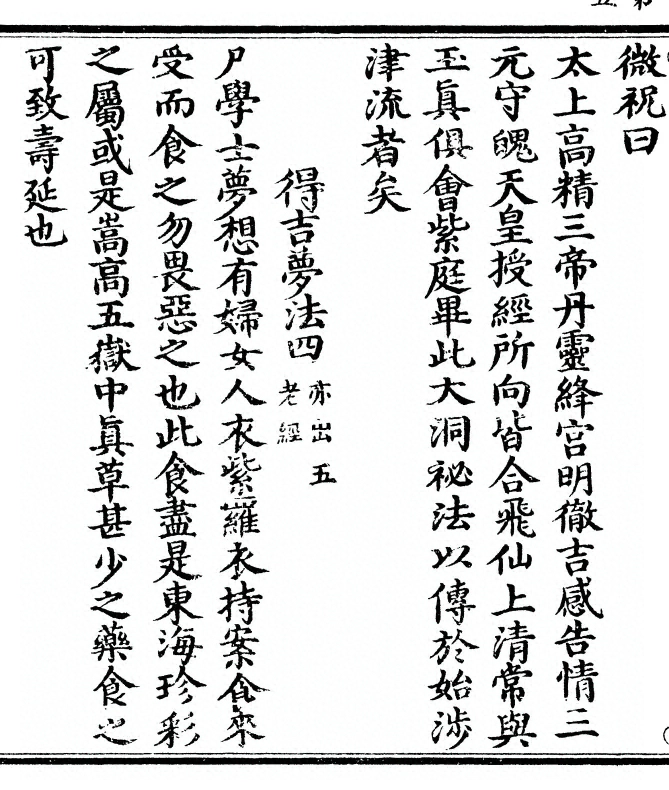 微祝曰
太上高精三帝丹靈絳宮明徹吉感告情三
元守魄天皇授經所向皆合飛仙上清常與
玉眞俱會紫庭畢此大洞祕法以傳於始涉
津流者矣
得吉夢法四亦出五老經
凡學士夢想有婦女人衣紫羅衣持案食來
受而食之勿畏惡之也此食盡是東海珍彩
之屬或是嵩高五嶽中眞草甚少之藥食之
可致壽延也